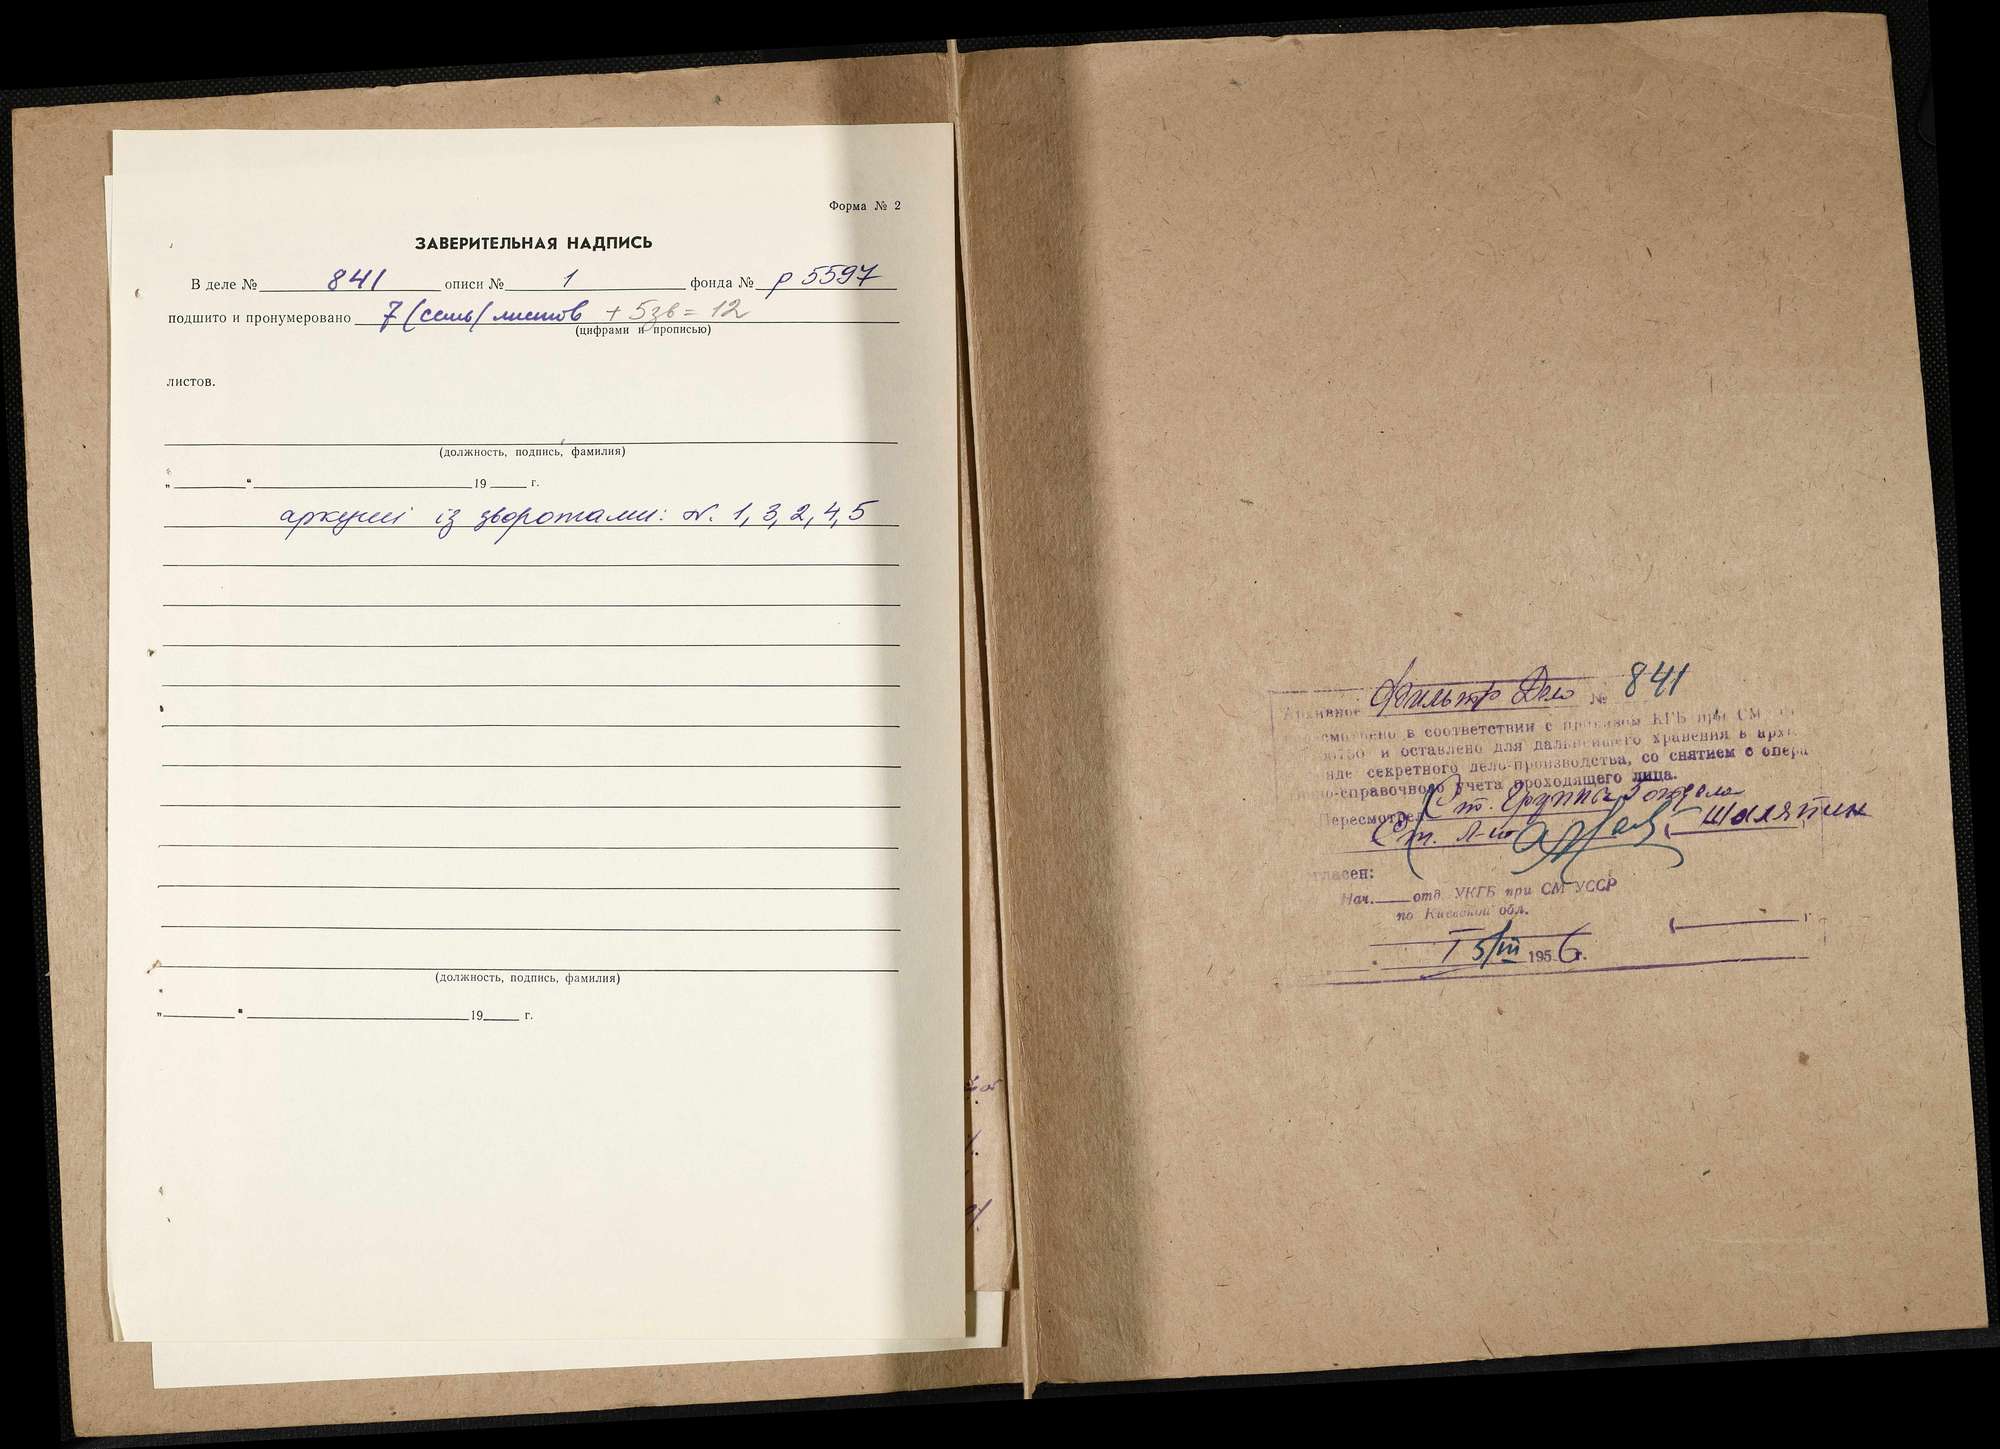 Форма № 2
ЗАВЕРИТЕЛЬНАЯ НАДПИСЬ
В деле № 841 описи № 1 фонда № р 5597
подшито и пронумеровано 7 (семь) листов + 5зв = 12
(цифрами и прописью)
листов.
(должность, подпись, фамилия)
„ “ 19 г.
аркуші із зворотами: N. 1, 3, 2, 4, 5
(должность, подпись, фамилия)
„ “ 19 г.
Архивное Фильтр Дело № 841
в соответствии с приказом КГБ при СМ
и оставлено для дальнейшего хранения в
секретного дело-производства, со снятием с опера
-справочного учета проходящего лица.
Пересмотрел Ст. Группы 3 отдела
Ст. Л-нт Шаляпин
Нач. отд. УКГБ при СМ УССР
по Киевской обл.
5/III 1956 г.